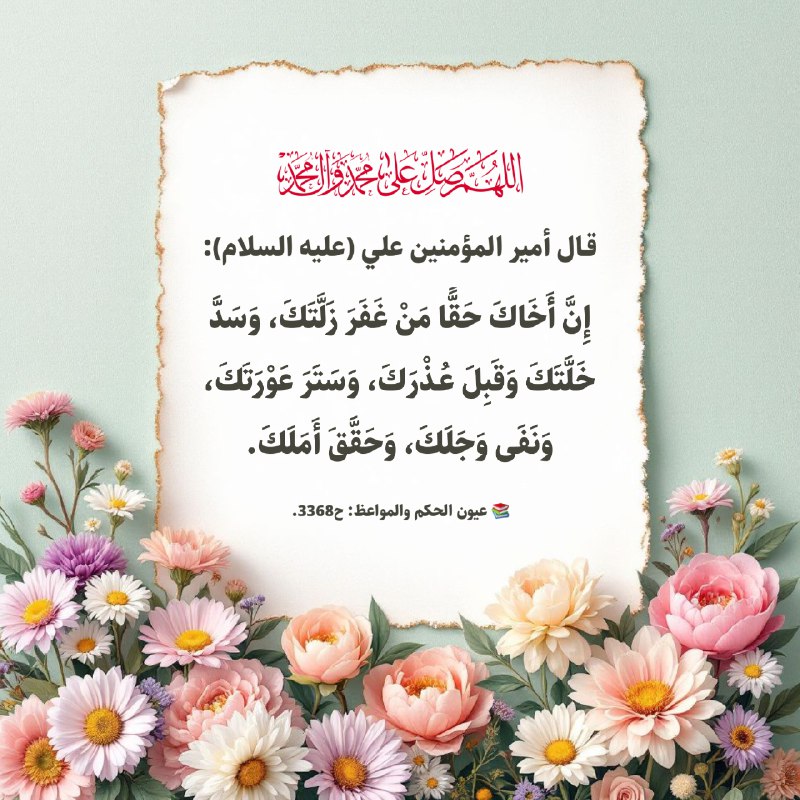 اللهم صل على محمد وآل محمد
قال أمير المؤمنين علي (عليه السلام):
إِنَّ أَخَاكَ حَقًّا مَنْ غَفَرَ زَلَّتَكَ، وَسَدَّ
خَلَّتَكَ وَقَبِلَ عُذْرَكَ، وَسَتَرَ عَوْرَتَكَ،
وَنَفَى وَجَلَكَ، وَحَقَّقَ أَمَلَكَ.
📚 عيون الحكم والمواعظ: ح3368.